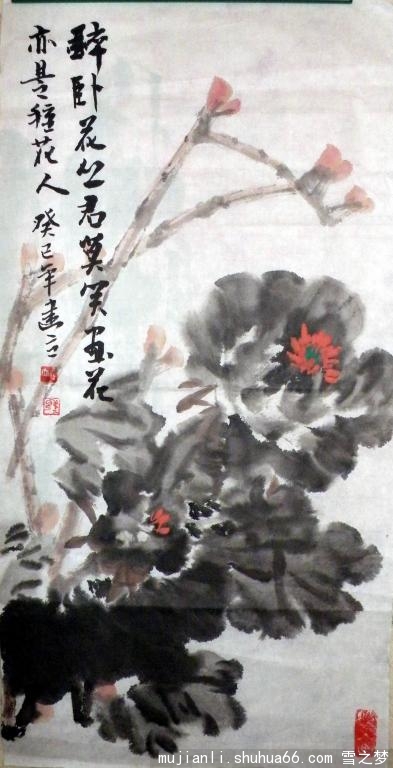 醉卧花丛君莫笑画花
亦是种花人 癸巳年建立
mujianli.shuhua66.com 雪之梦